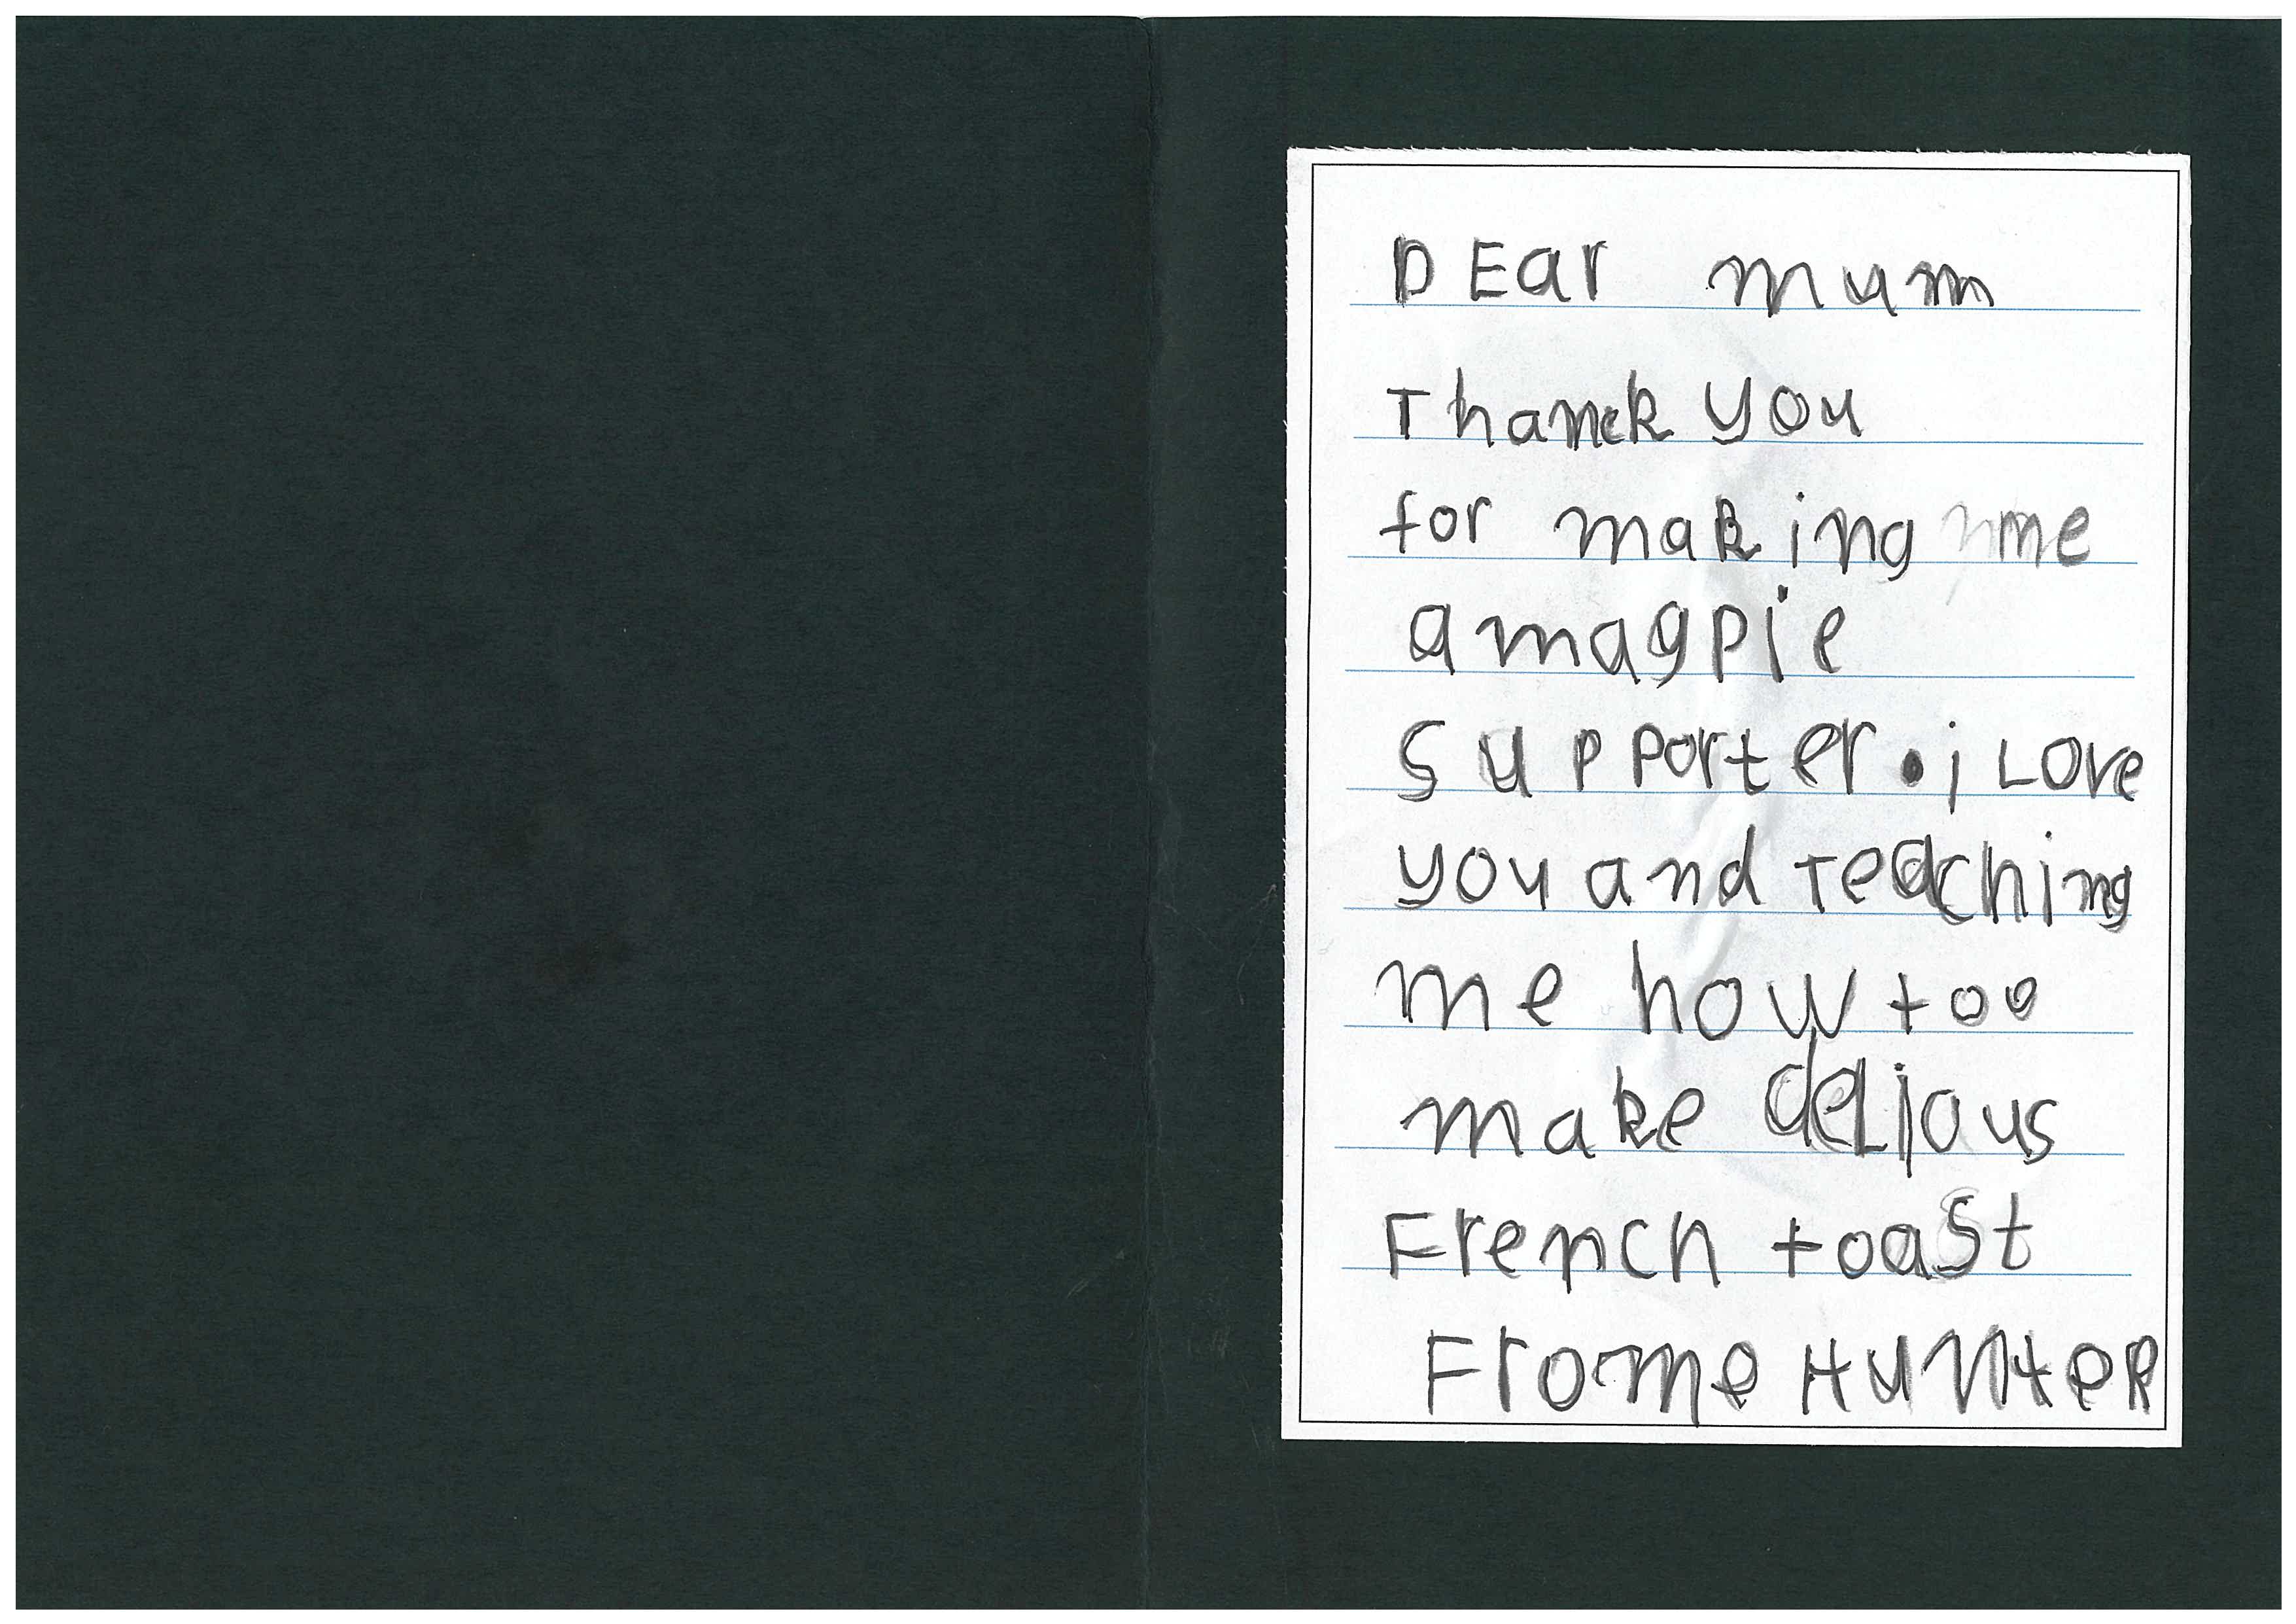 DEar mum
Thanck you
for making me
a magpie
supporter. i Love
you and Teaching
me how too
make deLious
French toast
Frome HunteR